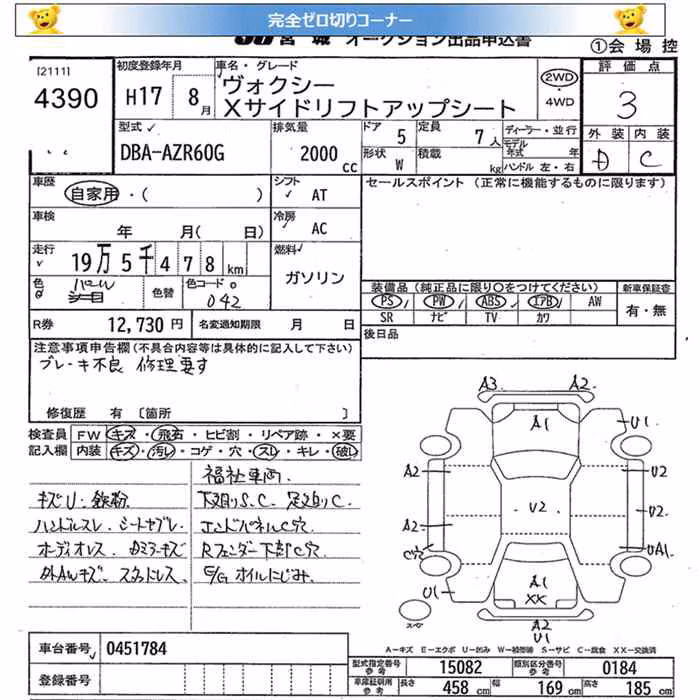 完全ゼロ切りコーナー
JU 宮 城 オークション出品申込書
①会 場 控
[2111]
4390
初度登録年月
H17 8月
車名・グレード
ヴォクシー
Xサイドリフトアップシート
2WD
・4WD
評 価 点
3
外 装 内 装
D C
型式
DBA-AZR60G
排気量
2000 cc
ドア 5
定員 7人
形状 W
積載 kg
ディーラー・並行
モデル年式 年
ハンドル 左・右
車歴
自家用・( )
シフト AT
セールスポイント (正常に機能するものに限ります)
車検
年 月( 日)
冷房 AC
走行
19万5千478km
燃料 ガソリン
色 パール
色替
色コード 042
装備品(純正品に限り○をつけてください)
新車保証書
PS PW ABS エアB AW
有・無
SR ナビ TV カワ
R券 12,730 円
名変通知期限 月 日
後日品
注意事項申告欄(不具合内容等は具体的に記入して下さい)
ブレーキ不良 修理要す
修復歴 有 [箇所 ]
検査員 FW キズ・飛石・ヒビ割・リペア跡・×要
記入欄 内装 キズ・汚レ・コゲ・穴・スレ・キレ・破レ
福祉車両
キズU・鉄粉 下廻りS.C. 足廻りC
ハンドルスレ シートヤブレ エンドパネルC穴
オーディオレス Rフェンダー下部C穴
外AWキズ スタッドレス E/Gオイルにじみ
A3 A2
A1
U1
A2 U2
U2
A2 U2
C穴 UA1
U1 A1 U1
XX
スペア
A2
U1
A-キズ E-エクボ U-凹み W-補修跡 S-サビ C-腐食 XX-交換済
車台番号 0451784
登録番号
型式指定番号参考 15082
類別区分番号参考 0184
車庫証明用参考 長さ 458 cm 幅 169 cm 高さ 185 cm